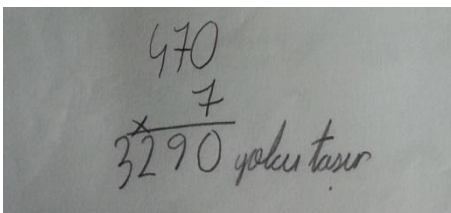 470
7
x
3290 yolcu taşır